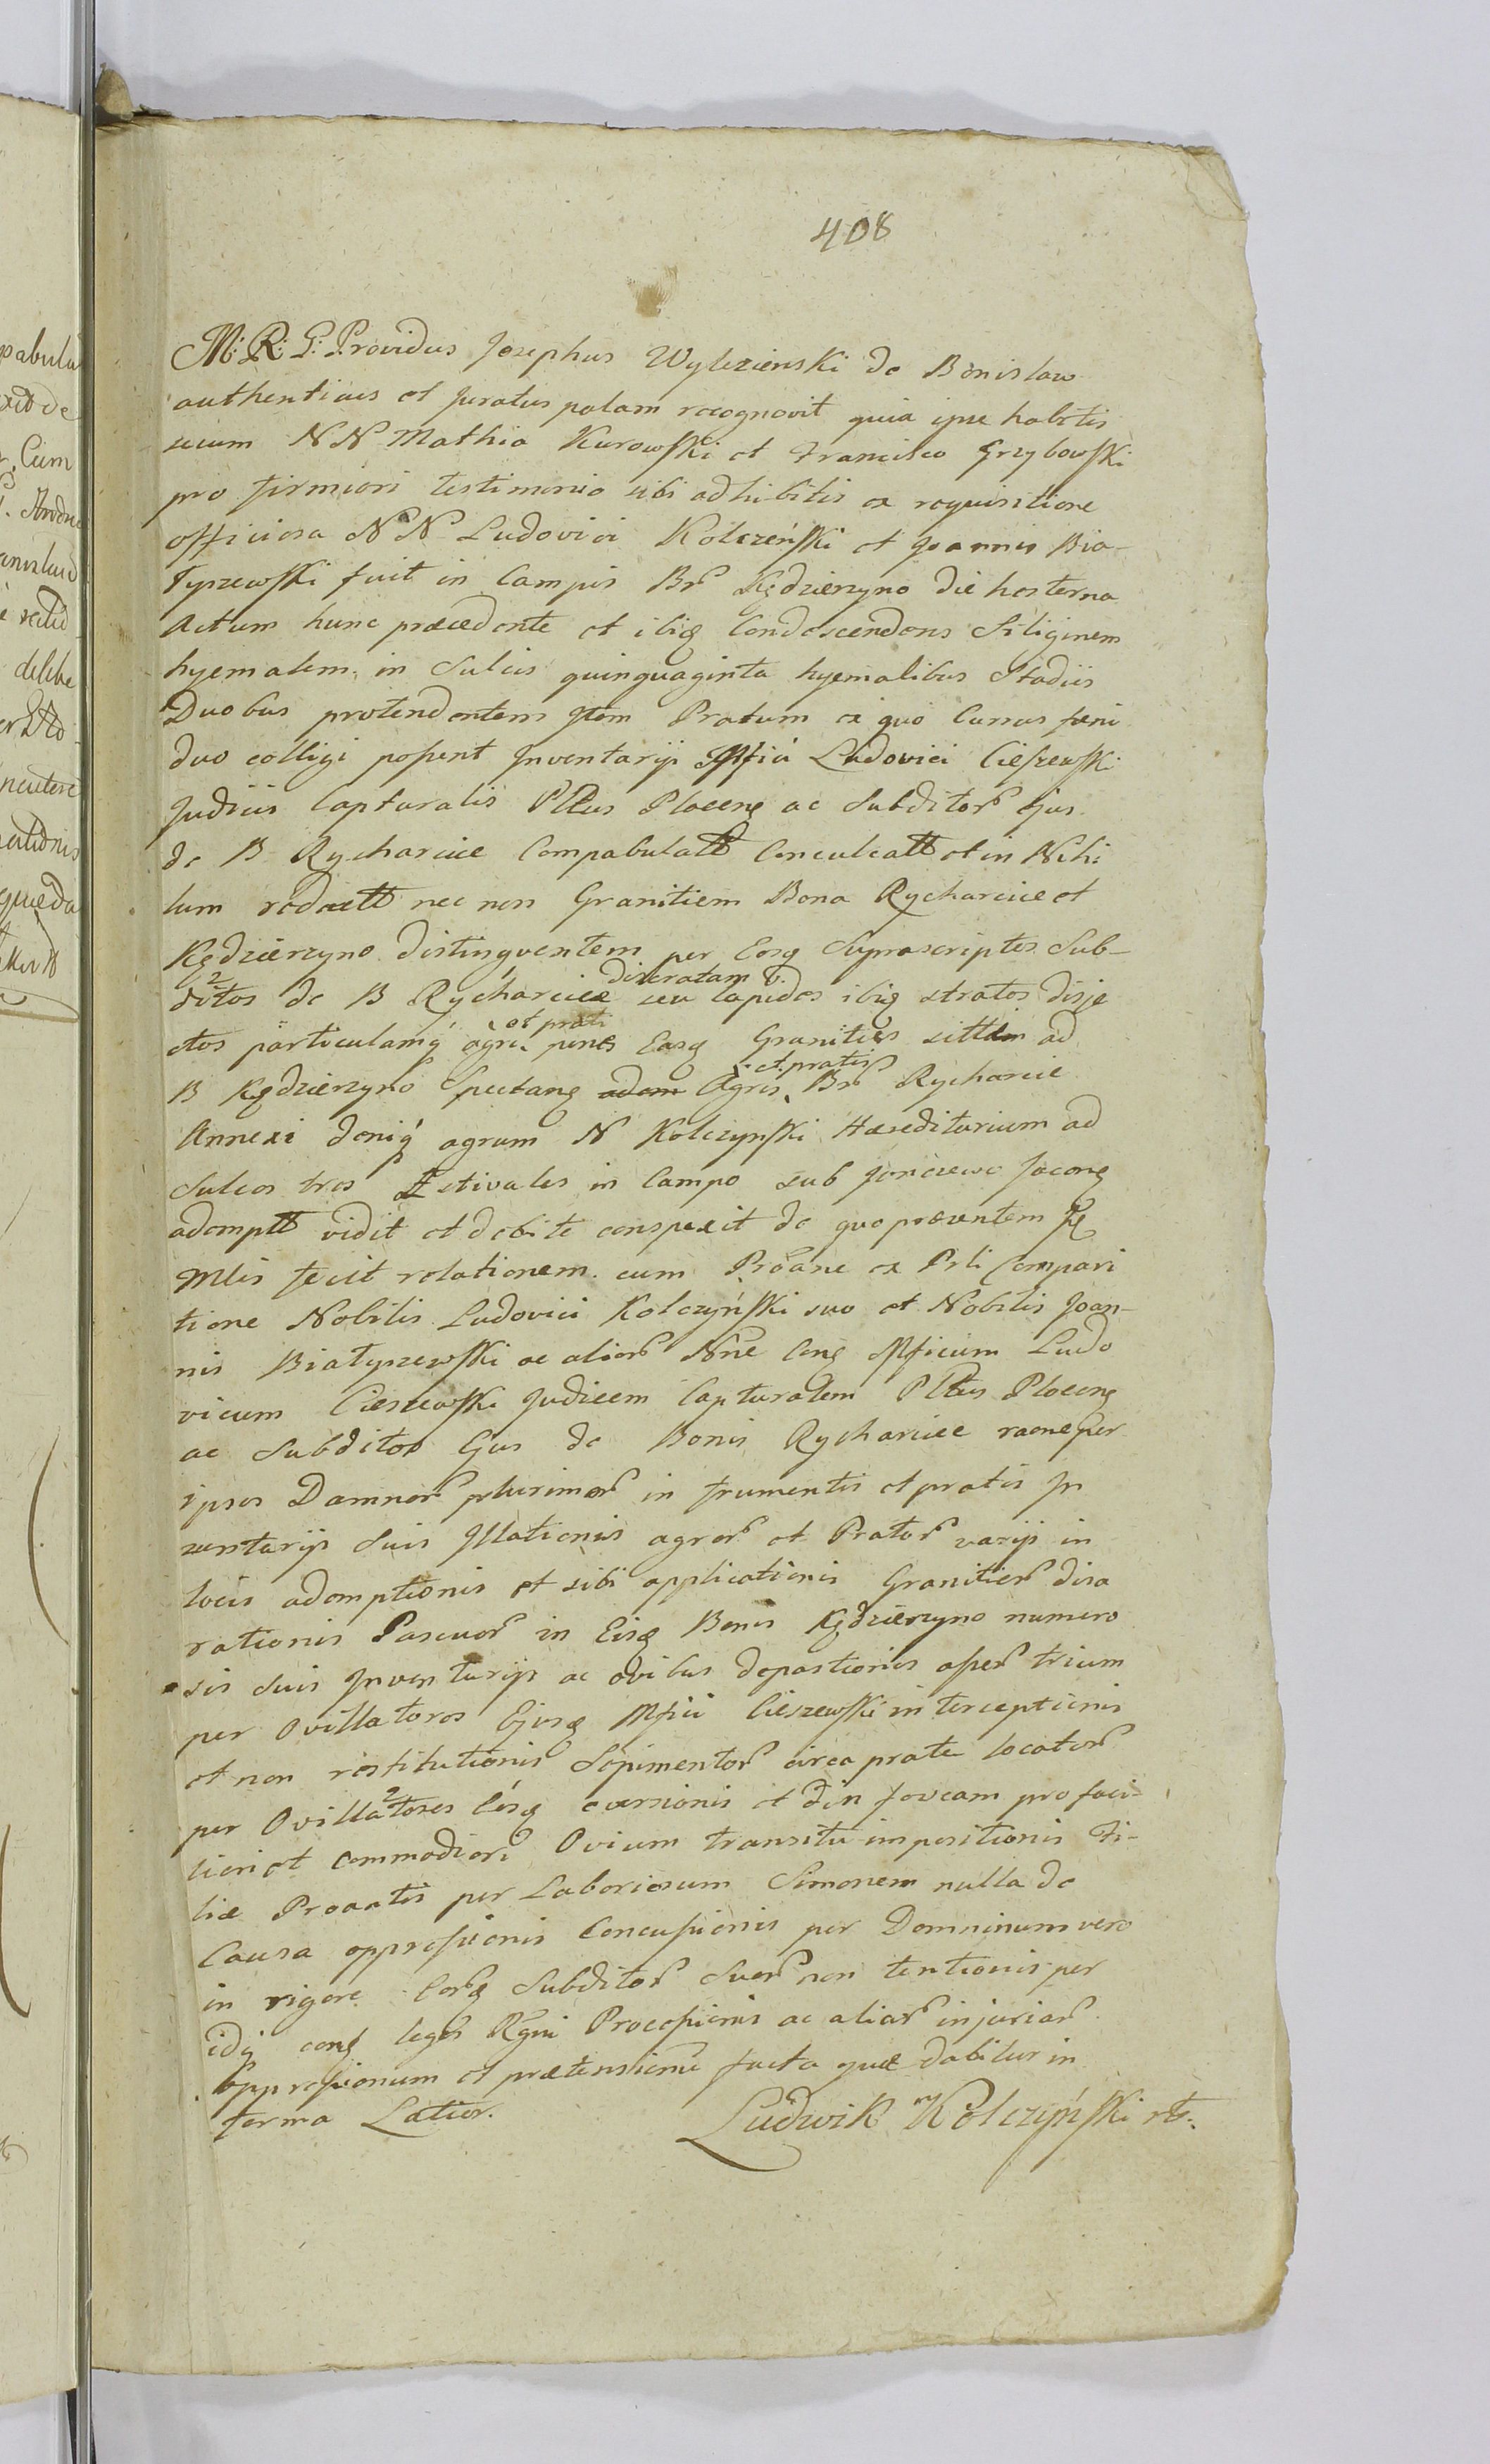 408
M: R: G: Providus Josephus Wylezienski de Bonislaw
authenticus et juratus palam recognovit quia ipse habitis
secum NN Mathia Kurowski et Francisco Grzybowski
pro firmiori testimonio sibi adhibitis ex requisitione
officiosa NN Ludovici Kolczeński et Joannis Bia-
łyszewski fuit in Campis Br Kędzierzyno die hesterna
Actum hunc præcedente et ibiq Condescendens Siliginem
hyemalem in Sulcis quinquaginta hyemalibus Stadiis
Duobus protendentem Item Pratum ex quo Currus fæni
duo colligi possent Inventarij Mfici Ludovici Cieszewski
Judicis Capturalis Pttus Plocens ac Subditor Ejus
de B Rycharcice Compabulatt Conculcatt et in Nihi
lum redactt nec non Granitiem Bona Rycharcice et
Kędzierzyno distinguentem per Eosq Suprascriptos Sub-
ditos de B Rycharcice diseratam &. seu lapides ibiq stratos disje
ctos particulamq agri et prati penes Easq Granities sittam ad
B Kędzierzyno Spectang adem Agris et pratis Br Rycharcie
Annexi deniq agrum N Kolczynski Hæreditarium ad
Sulcos tres Æstivales in Campo sub Jonczewo Jacong
ademptt vidit et debite conspexit de quo præsentem
Mlis fecit relationem. cum Proane ex Prli Compari
tione Nobilis Ludovici Kolczyński suo et Nobilis Joan-
nis Białyszewski ac alior Nne Cong Mficum Ludo
vicum Cieszewski Judicem Capturalem Pttus Plocens
ac Subditos Ejus de Bonis Rycharcice raone per
ipsos Damnor plurimor in frumentis et pratis In
ventarijs Suis Illationis agror et Prator varijs in
locis ademptionis et sibi applicationis Granitier disa
rationis Pascuor in Eisq Bonis Kędzierzyno numero
sis suis Inventarijs ac ovibus depastionis asser trium
per Ovillatores Ejusq Mfici Cieszewski interceptionis
et non restitutionis Sepimentor circa prata locator
per Ovillatores Eosq eversionis et din foveam pro faci-
liori et commodiori Ovium transitu impositionis Fi-
liæ Proantis per Laboriosum Simonem nulla de
Causa oppressionis Concussionis per Dominum vero
in rigore Eorq Subditor Suor non tentionis per
idq cong leges Regni Processionis ac aliar injuriar
oppressionum et prætensionu facta quæ dabitur in
forma Latior.
Ludwik Kolczyński